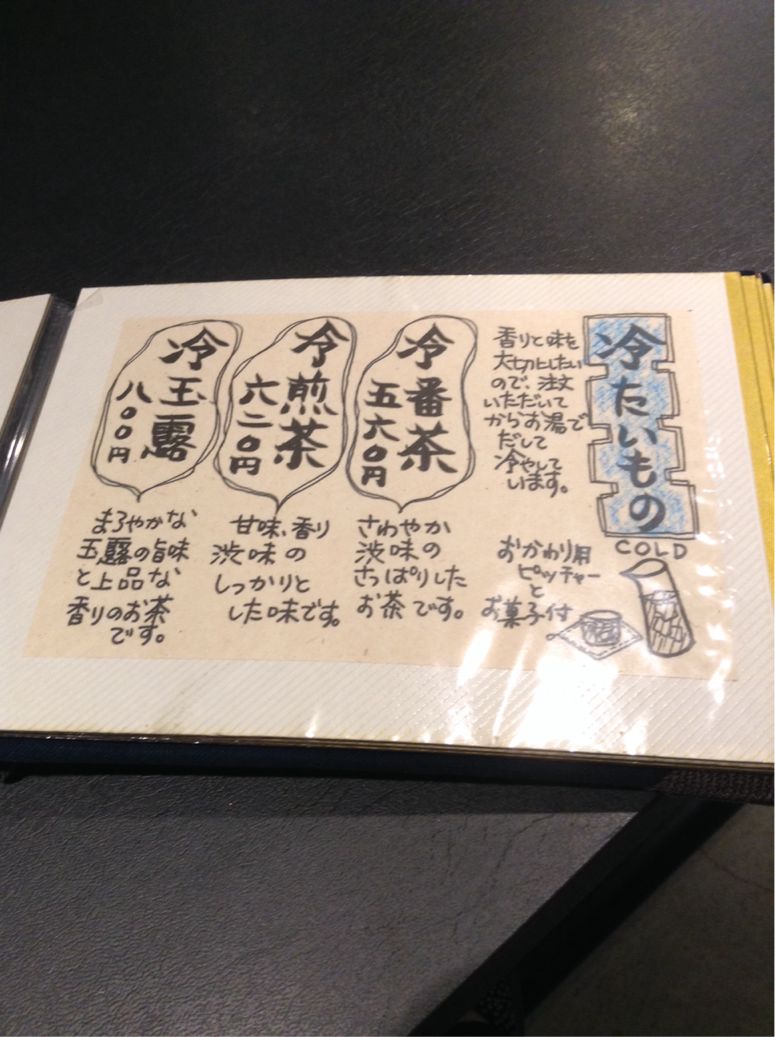 冷たいもの
COLD
香りと味を
大切にしたい
ので、注文
いただいて
からお湯で
だして
冷やして
います。
おかわり用
ピッチャー
と
お菓子付
冷番茶
五六〇円
さわやか
渋味の
さっぱりした
お茶です。
冷煎茶
六二〇円
甘味、香り
渋味の
しっかりと
した味です。
冷玉露
八〇〇円
まろやかな
玉露の旨味
と上品な
香りのお茶
です。